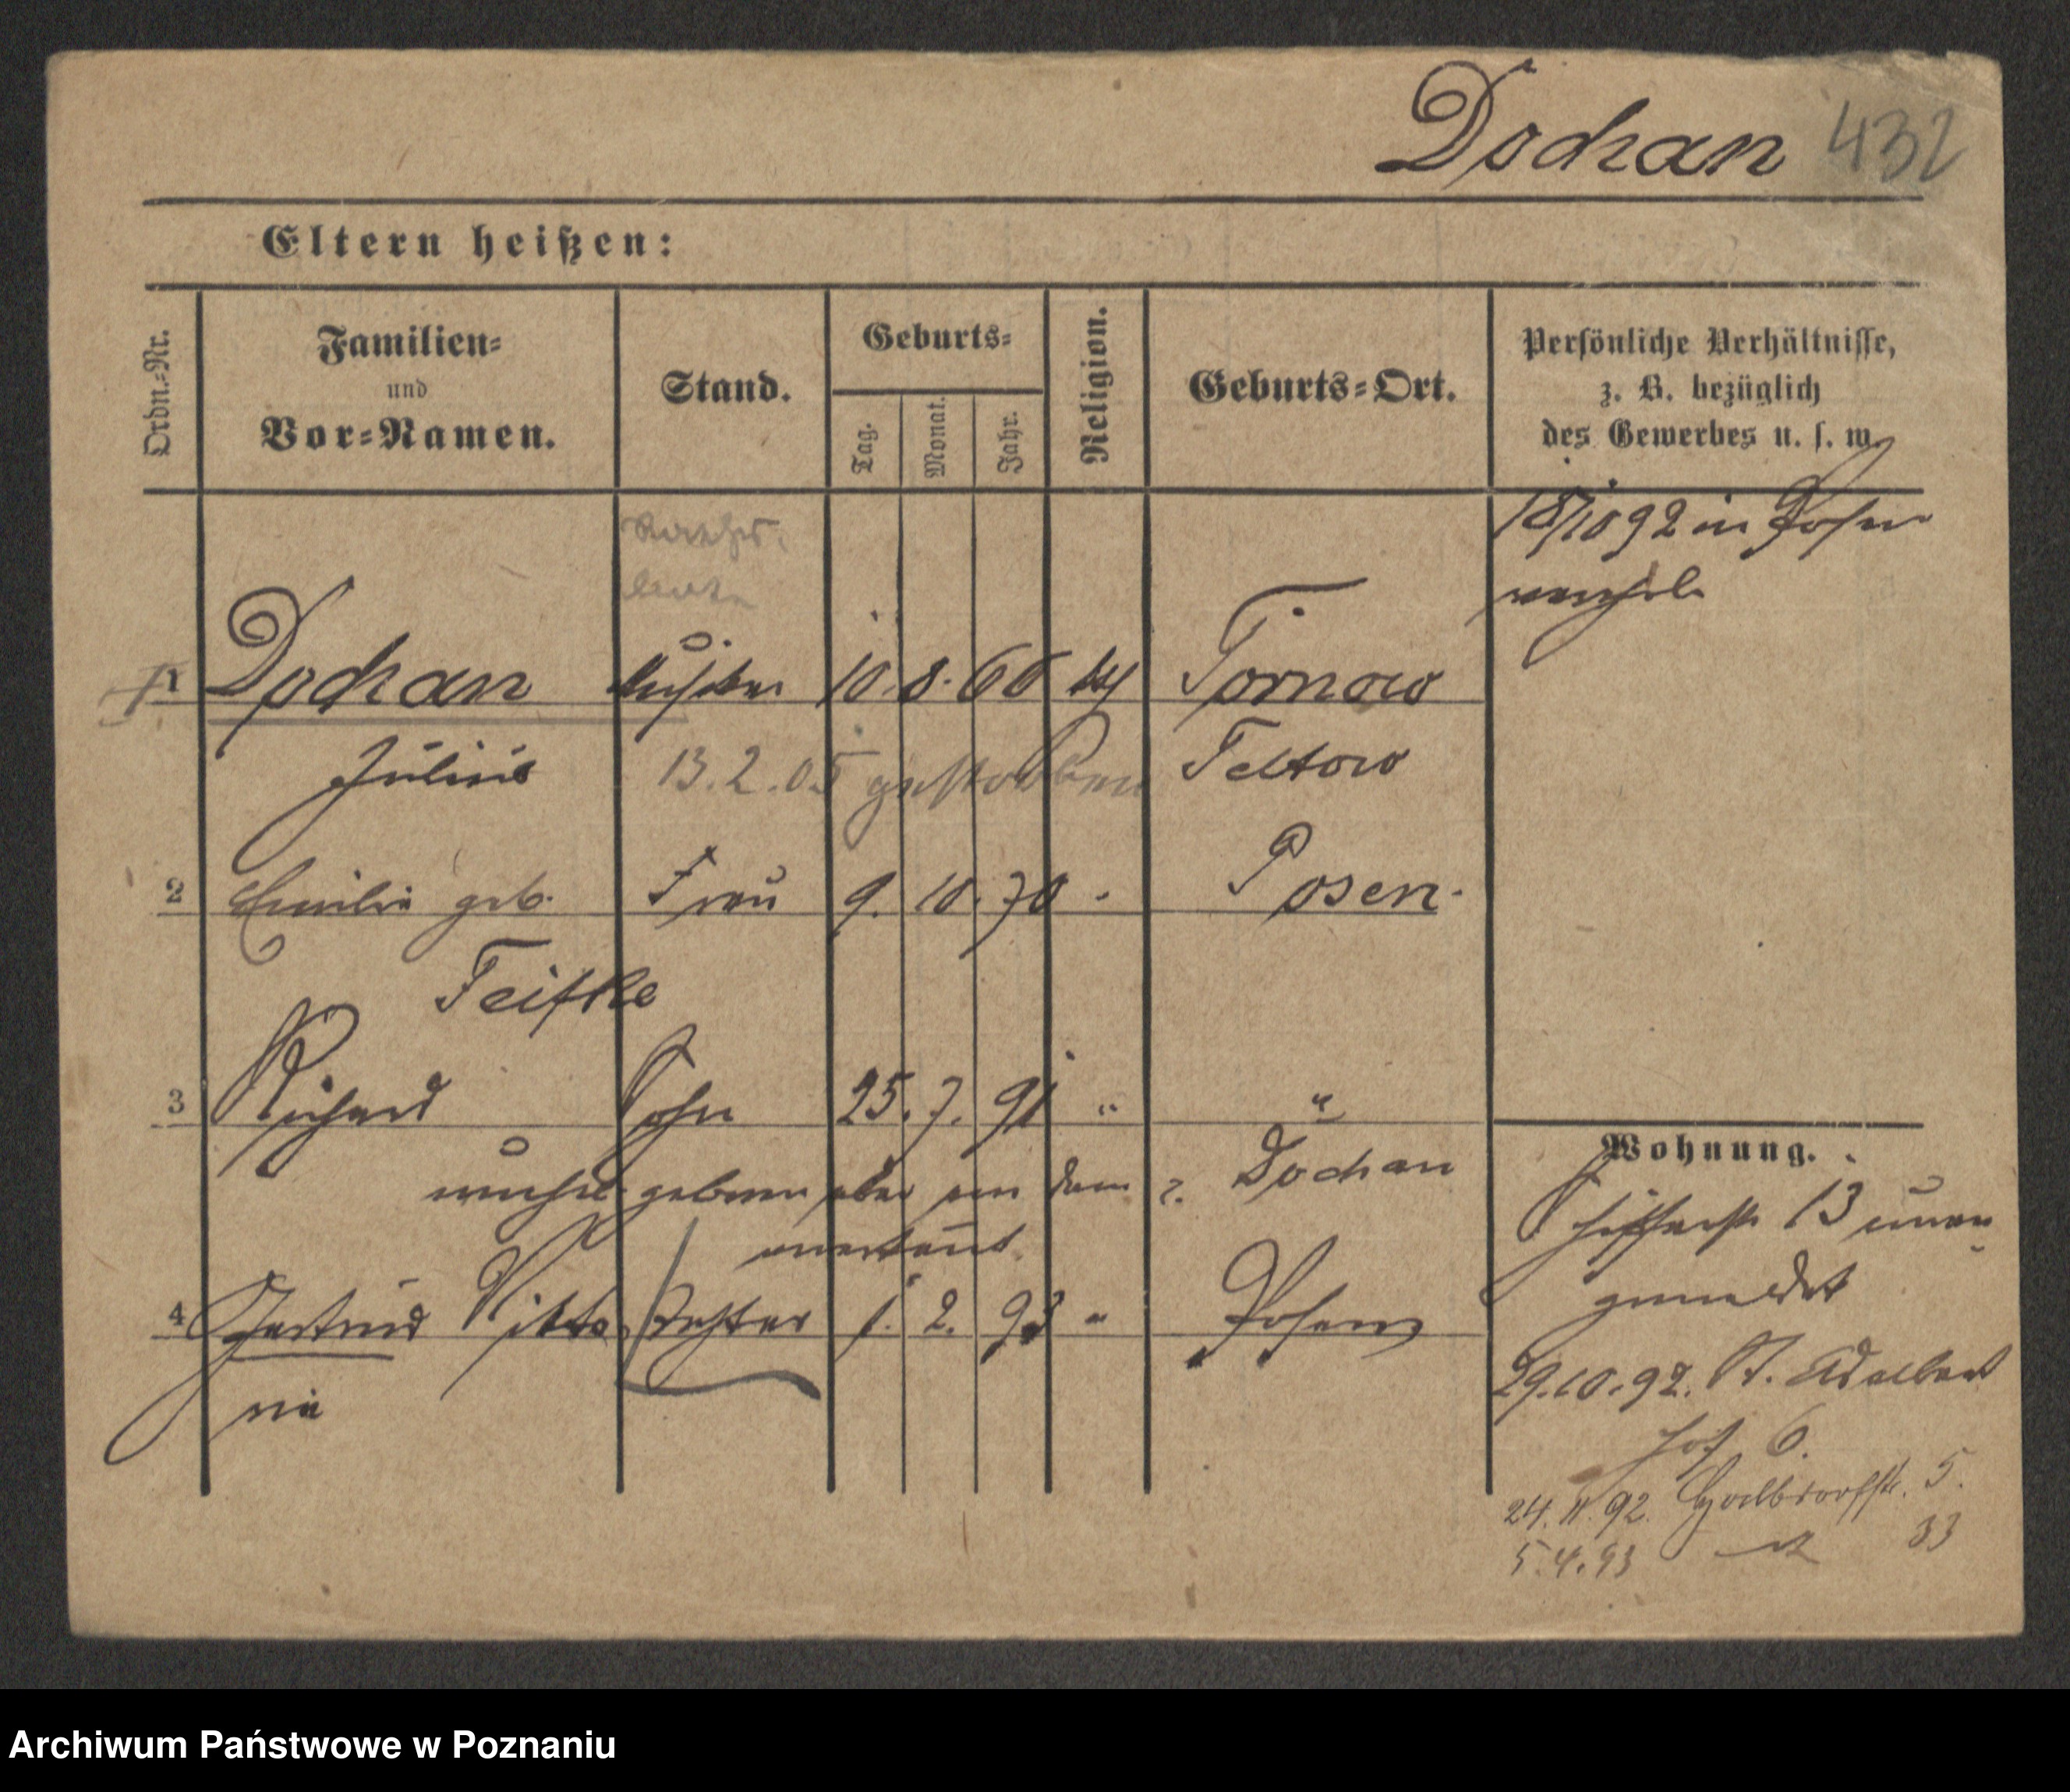 Dochan 432
Eltern heißen:
Ordn.-Nr.
Familien-
und
Vor-Namen.
Stand.
Geburts-
Tag.
Monat.
Jahr.
Religion.
Geburts-Ort.
Persönliche Verhältnisse,
z. B. bezüglich
des Gewerbes u. s. w.
18/10 92 in Posen
1 Dochan 10. 8. 66 Tornow
Julius 13.2.05 gestorben Teltow
2 Emilie geb. Frau 9. 10. 70 Posen.
Teifke
3 Richard Sohn 25. 7. 91 " "
geboren aber von dem p. Dochan
anerkannt
4 Gertrud Vikto Tochter 1. 2. 93 " Posen
ria
Wohnung.
13
gemeldet
29.10.92. St. Adalbert
hof 6.
24.11.92. 5.
5.4.93 33
Archiwum Państwowe w Poznaniu